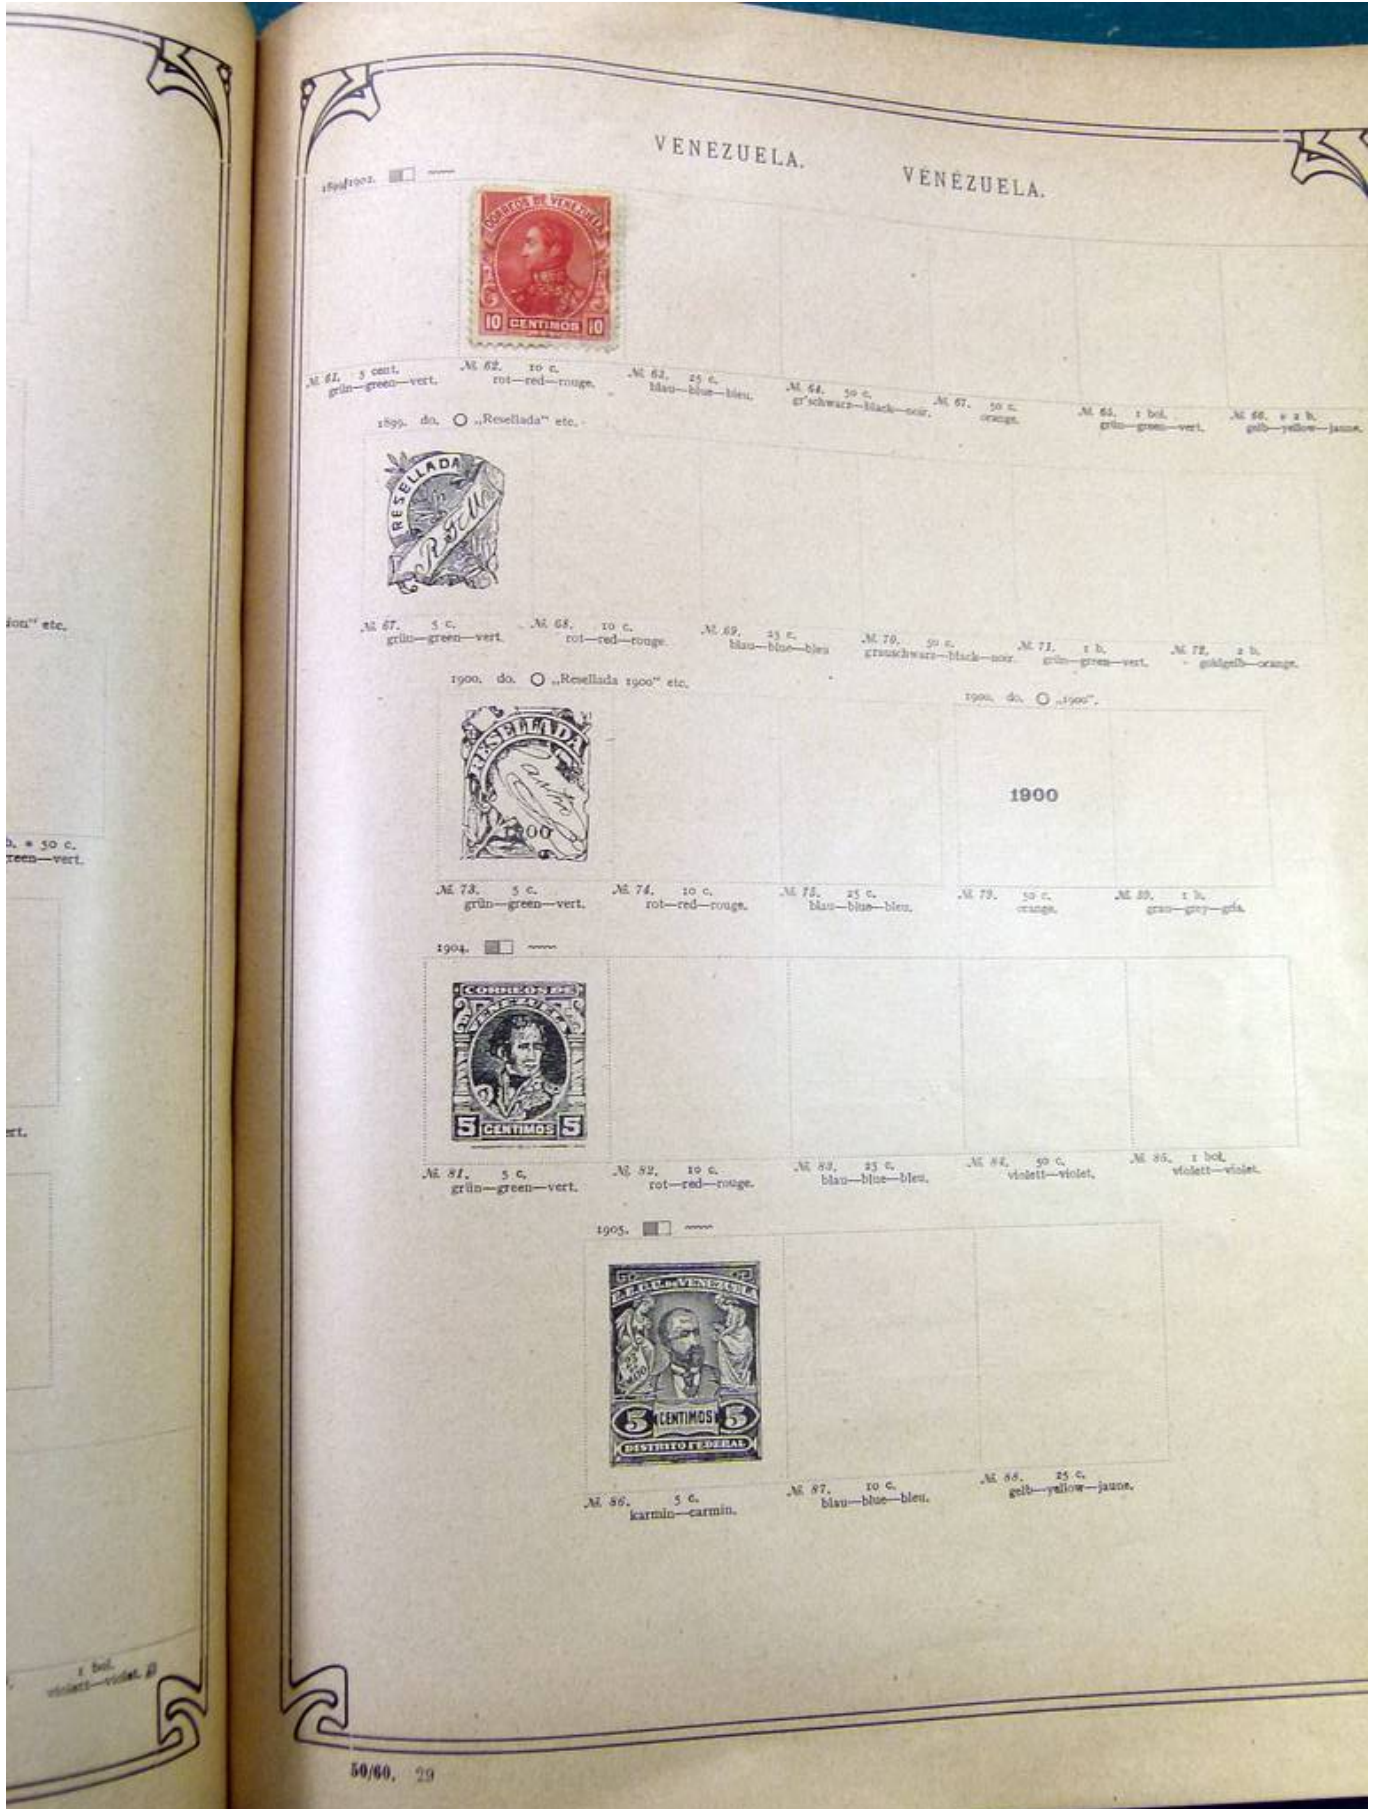 VENEZUELA.
VÉNÉZUELA.
1899/1902.
CORREOS DE VENEZUELA
10 CENTIMOS 10
№ 61. 5 cent.
grün—green—vert.
№ 62. 10 c.
rot—red—rouge.
№ 63. 25 c.
blau—blue—bleu.
№ 64. 50 c.
gr'schwarz—black—noir.
№ 67. 50 c.
orange.
№ 65. 1 bol.
grün—green—vert.
№ 66. * 2 b.
gelb—yellow—jaune.
1899. do. „Resellada" etc.
RESELLADA
R T M
№ 67. 5 c.
grün—green—vert.
№ 68. 10 c.
rot—red—rouge.
№ 69. 25 c.
blau—blue—bleu
№ 70. 50 c.
grauschwarz—black—noir.
№ 71. 1 b.
grün—green—vert.
№ 72. 2 b.
goldgelb—orange.
1900. do. „Resellada 1900" etc.
1900. do. „1900".
RESELLADA
Castro
1900
1900
№ 73. 5 c.
grün—green—vert.
№ 74. 10 c.
rot—red—rouge.
№ 75. 25 c.
blau—blue—bleu.
№ 79. 50 c.
orange.
№ 80. 1 b.
grau—grey—gris.
1904.
CORREOS DE
VENEZUELA
5 CENTIMOS 5
№ 81. 5 c.
grün—green—vert.
№ 82. 10 c.
rot—red—rouge.
№ 83. 25 c.
blau—blue—bleu.
№ 84. 50 c.
violett—violet.
№ 85. 1 bol.
violett—violet.
1905.
E.E.U.U. DE VENEZUELA
5 CENTIMOS 5
DISTRITO FEDERAL
№ 86. 5 c.
karmin—carmin.
№ 87. 10 c.
blau—blue—bleu.
№ 88. 25 c.
gelb—yellow—jaune.
50/60. 29
ion" etc.
b. * 50 c.
reen—vert.
ert.
1 bol.
violett—violet.